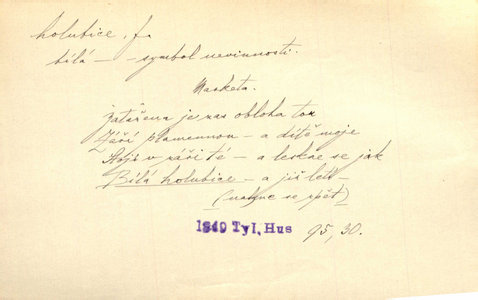 holubice, f.
bílá – - symbol nevinnosti.
Marketa.
Zatažena je nas obloha tou
Září plamennou – a dítě moje
Stojí v záři té – a leskne se jak
Bílá holubice – a již letí –
(nahne se zpět)
1849 Tyl, Hus 95, 30.